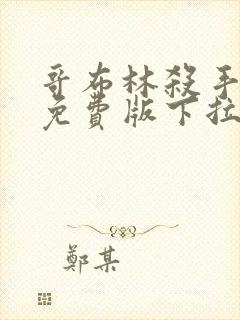 哥布林殺手
免費版下拉
鄭某